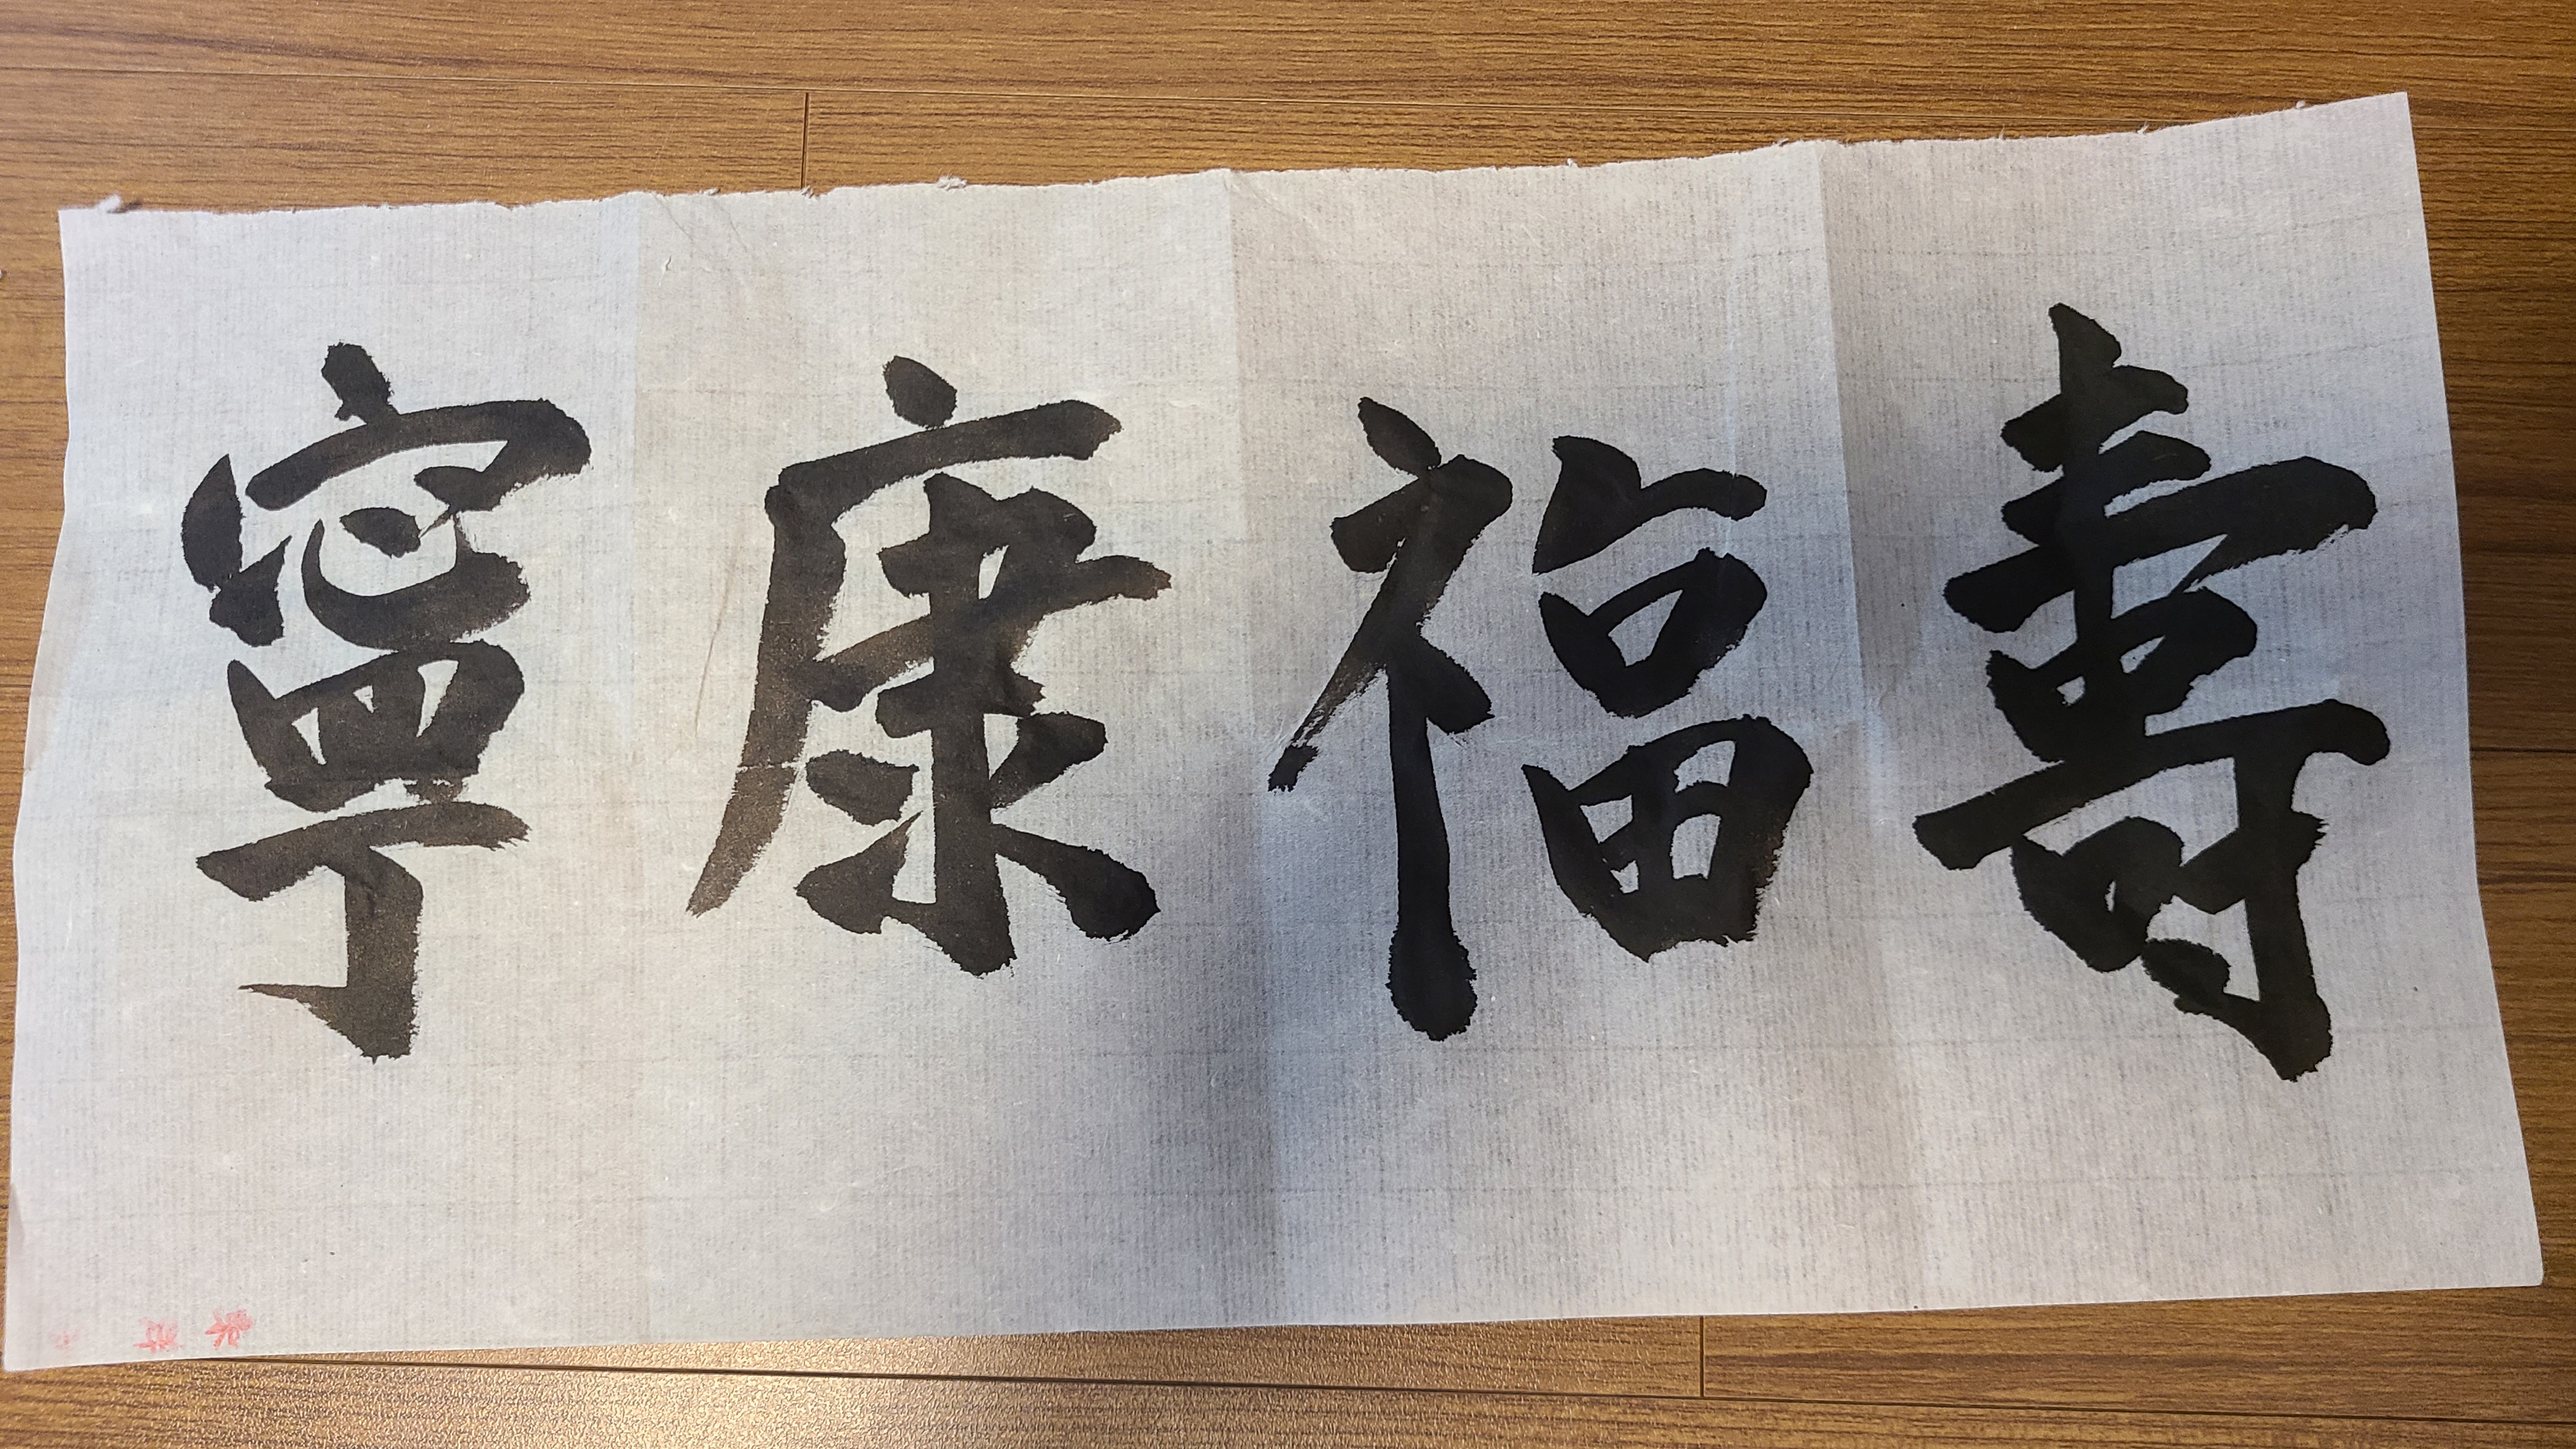 壽福康寧